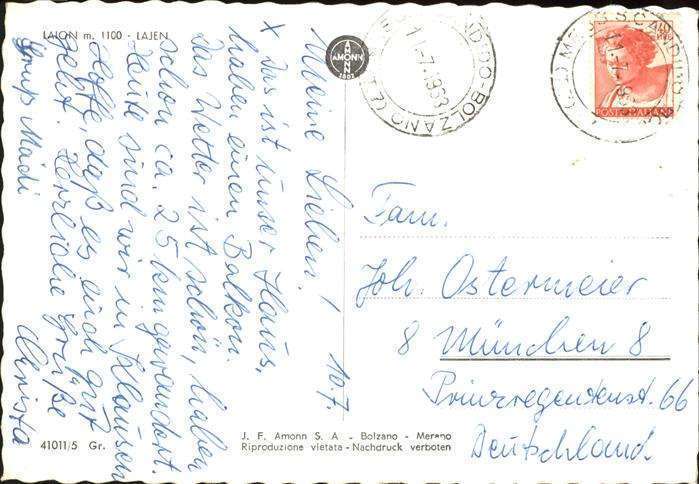 LAION m. 1100 - LAJEN
Meine Lieben! 10.7.
x Das ist unser Haus,
haben einen Balkon.
Das Wetter ist schön, haben
schon ca. 25 km gewandert.
Heute sind wir in Klausen
Hoffe, daß es euch gut
geht. Herzliche Grüße
Christa
Grup Mädi
AMONN
1802
BOLZANO
11-7.1963
11-7-1963
40
POSTE ITALIANE
Fam.
Joh. Ostermeier
8 München 8
Prinzregentenst. 66
Deutschland
J. F. Amonn S. A. - Bolzano - Merano
Riproduzione vietata - Nachdruck verboten
41011/5 Gr.